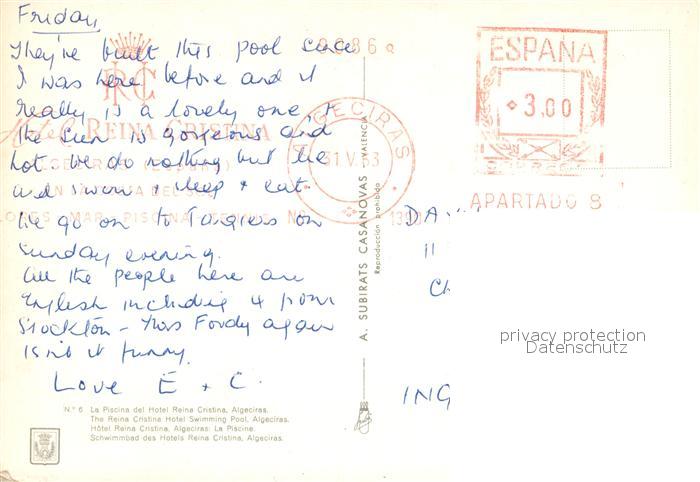 Friday
They've built this pool since
I was here before and it
really is a lovely one +
the sun is gorgeous and
hot. We do nothing but lie
and swim + sleep + eat.
We go on to Tangiers on
Sunday evening.
All the people here are
English including 4 from
Stockton - Mrs Fordy again
isn't it funny.
Love E + C.
Nº 6 La Piscina del Hotel Reina Cristina, Algeciras.
The Reina Cristina Hotel Swimming Pool, Algeciras.
Hôtel Reina Cristina, Algeciras: La Piscine.
Schwimmbad des Hotels Reina Cristina, Algeciras.
A. SUBIRATS CASANOVAS VALENCIA
Reproducción prohibida
REINA CRISTINA
ALGECIRAS
31 V. 63
ESPAÑA
3,00
CORREOS
APARTADO 8
DA
11
Ch
ING
privacy protection
Datenschutz